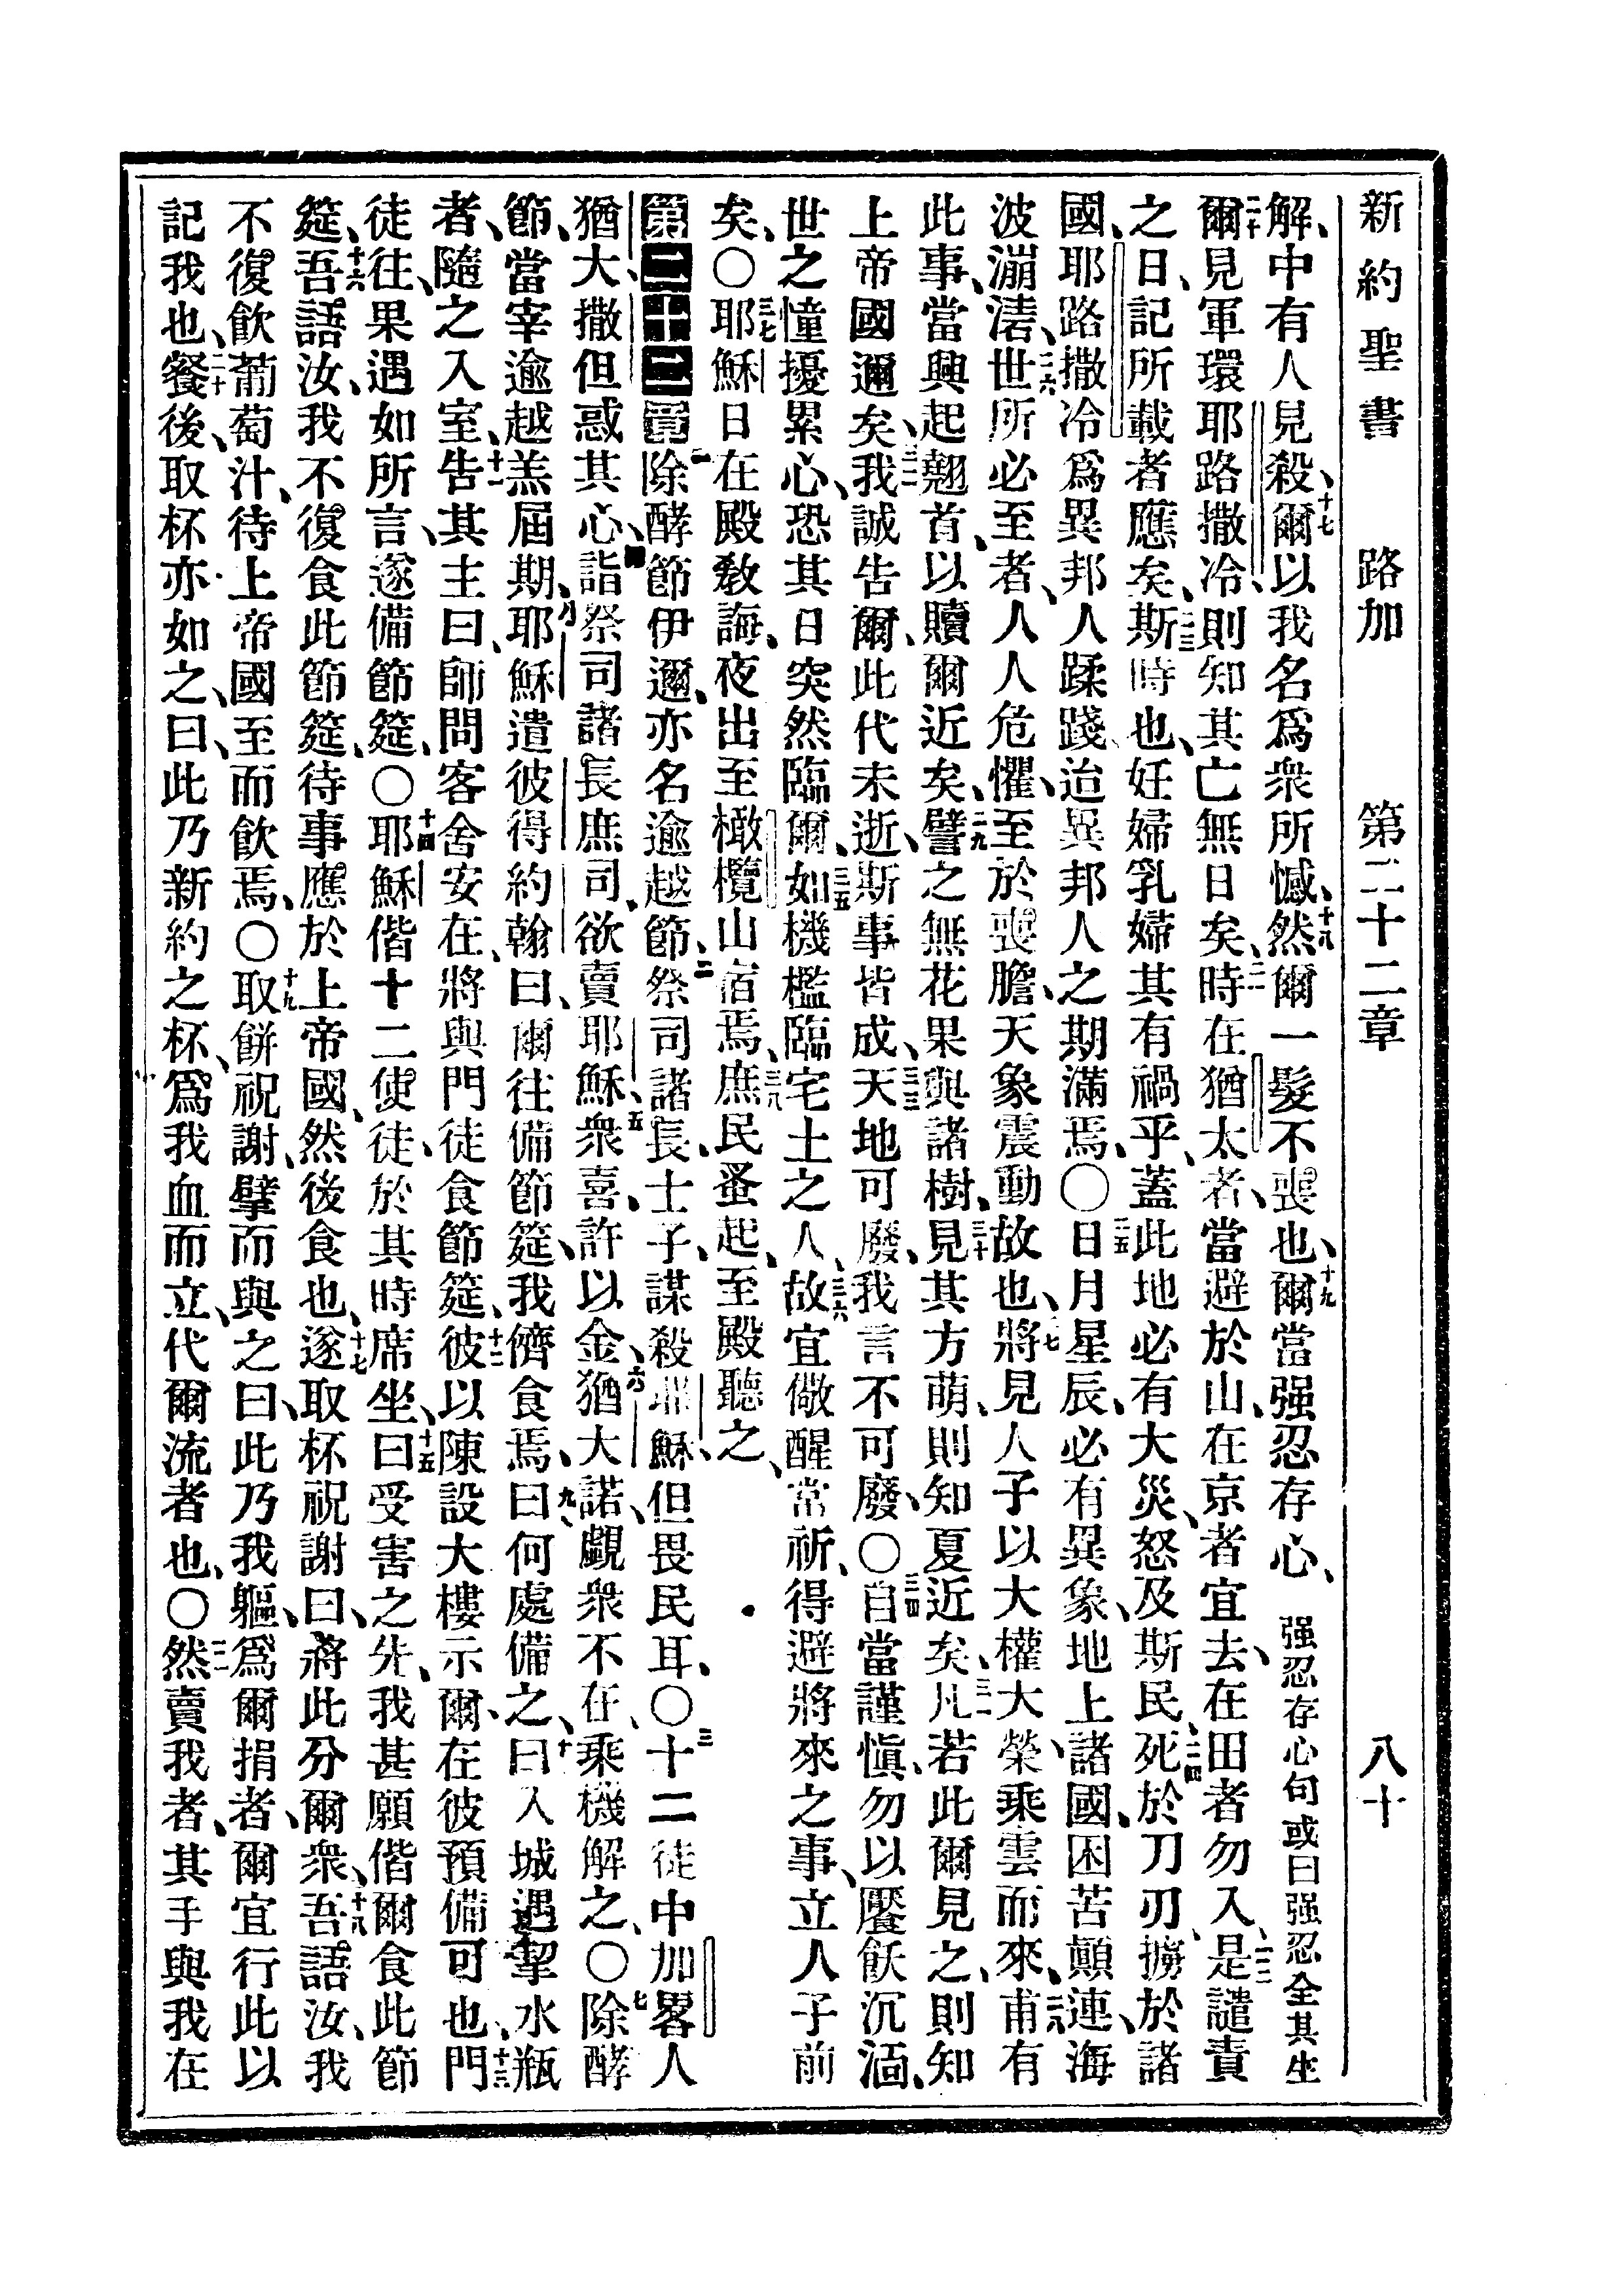 新約聖書 路加 第二十二章 八十
解、中有人見殺、十七爾以我名爲衆所憾、十八然爾一髮不喪也、十九爾當强忍存心、强忍存心句或曰强忍全其生
二十爾見軍環耶路撒冷、則知其亡無日矣、二一時在猶太者、當避於山、在京者宜去、在田者勿入、二二是譴責
之日、記所載者應矣、二三斯時也、妊婦乳婦其有禍乎、蓋此地必有大災、怒及斯民、二四死於刀刃、擄於諸
國、耶路撒冷爲異邦人蹂踐、迨異邦人之期滿焉、〇二五日月星辰、必有異象、地上諸國、困苦顚連、海
波漰湱、二六世所必至者、人人危懼、至於喪膽、天象震動故也、二七將見人子以大權大榮、乘雲而來、二八甫有
此事、當興起翹首、以贖爾近矣、二九譬之無花果與諸樹、三十見其方萌、則知夏近矣、三一凡若此爾見之、則知
上帝國邇矣、三二我誠告爾、此代未逝、斯事皆成、三三天地可廢、我言不可廢、〇三四自當謹愼、勿以饜飫沉湎、
世之憧擾累心、恐其日突然臨爾、三五如機檻臨宅土之人、三六故宜儆醒常祈、得避將來之事、立人子前
矣、〇三七耶穌日在殿敎誨、夜出至橄欖山宿焉、三八庶民蚤起、至殿聽之、
第二十二章一除酵節伊邇、亦名逾越節、二祭司諸長、士子、謀殺耶穌、但畏民耳、〇三十二徒中加畧人
猶大、撒但惑其心、四詣祭司諸長庶司、欲賣耶穌、五衆喜、許以金、六猶大諾、覷衆不在、乘機解之、〇七除酵
節、當宰逾越羔屆期、八耶穌遣彼得約翰曰、爾往備節筵、我儕食焉、九曰、何處備之、十曰、入城遇挈水瓶
者、隨之入室、十一告其主曰、師問客舍安在、將與門徒食節筵、十二彼以陳設大樓示爾、在彼預備可也、十三門
徒往、果遇如所言、遂備節筵、〇十四耶穌偕十二使徒、於其時席坐、十五曰、受害之先、我甚願偕爾食此節
筵、十六吾語汝、我不復食此節筵、待事應於上帝國、然後食也、十七遂取杯祝謝曰、將此分爾衆、十八吾語汝、我
不復飮葡萄汁、待上帝國至而飮焉、〇十九取餅祝謝、擘而與之曰、此乃我軀、爲爾捐者、爾宜行此以
記我也、二十餐後、取杯亦如之、曰、此乃新約之杯、爲我血而立、代爾流者也、〇二一然賣我者、其手與我在